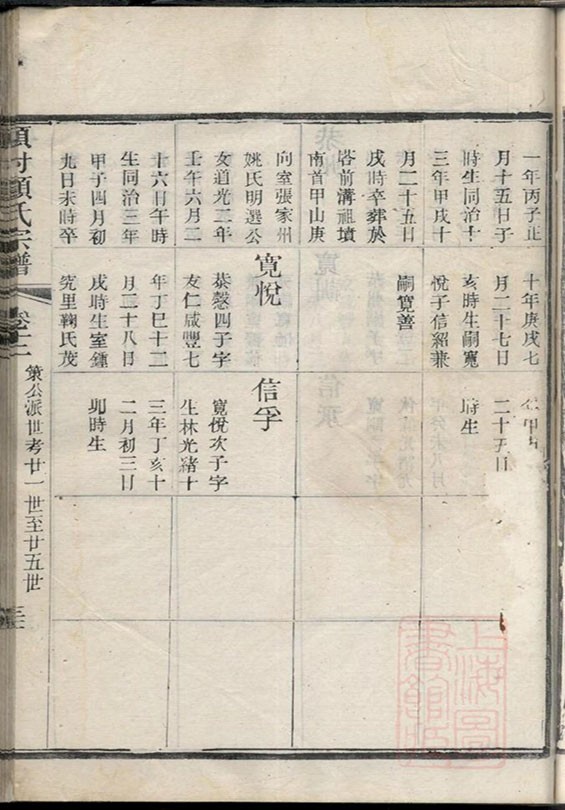 一年丙子正
月十五日子
時生同治十
三年甲戌十
月二十五日
戌時卒葬於
塔前溝祖墳
南首甲山庚
向室張家州
姚氏明選公
女道光二年
壬午六月二
十六日午時
生同治三年
甲子四月初
九日未時卒
十年庚戌七
月二十七日
亥時生嗣寬
悅子信紹兼
嗣寬善
寬悅
恭慤四子字
友仁咸豐七
年丁巳十二
月二十八日
戌時生室鍾
究里鞠氏茂
二十五日
時生
信孚
寬悅次子字
生林光緒十
三年丁亥十
二月初三日
卯時生
村項氏宗譜
卷十二
策公派世考廿一世至廿五世
上海圖書館藏